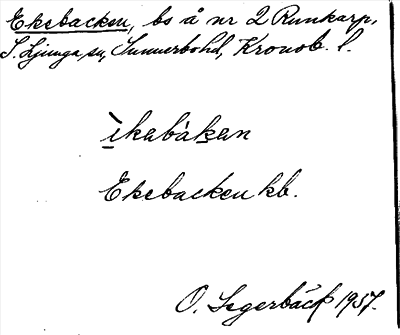 Ekebacken, bs å nr 2 Runkarp,
S. Ljunga sn, Sunnerbo hd, Kronob. l.
ìkabàkan
Ekebacken kb.
O. Segerbäck 1957.